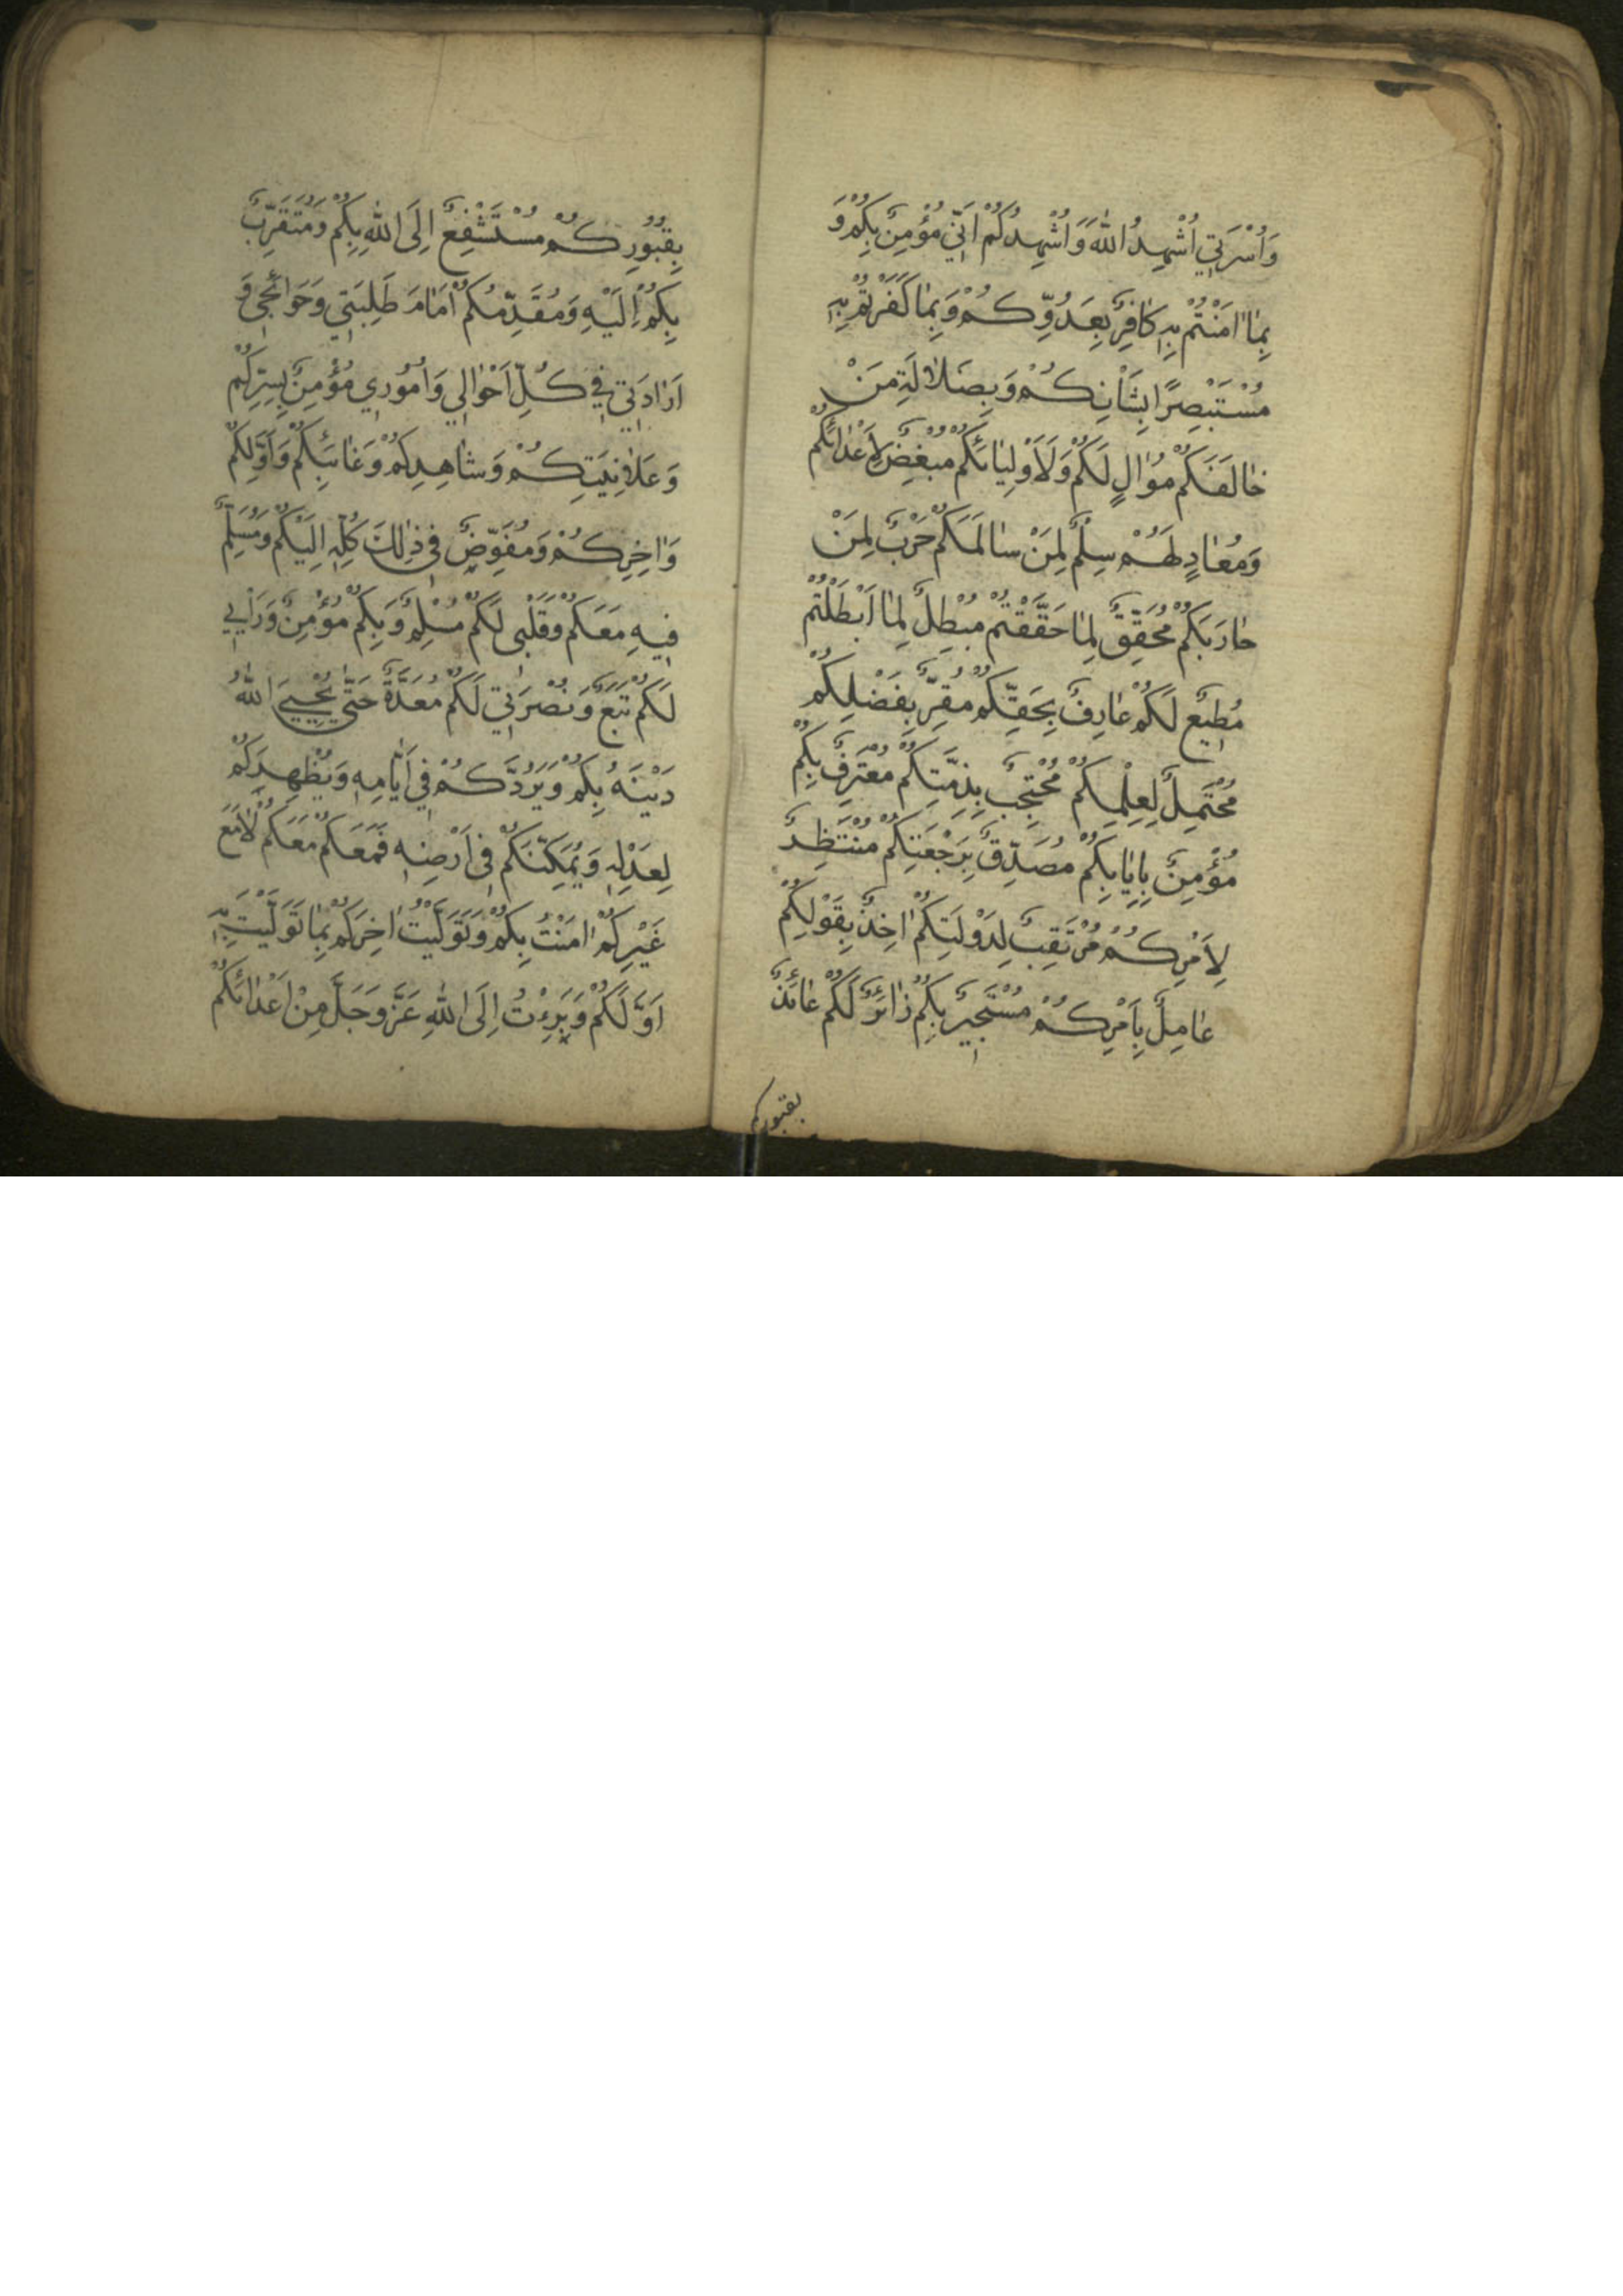 وَاُسْرَتِي اُشْهِدُ اللّٰهَ وَاُشْهِدُكُمْ اَنِّي مُؤْمِنٌ بِكُمْ وَ
بِمٰا اٰمَنْتُمْ بِهِ كٰافِرٌ بِعَدُوِّكُمْ وَبِمٰا كَفَرْتُمْ بِهِ
مُسْتَبْصِرًا بِشَأْنِكُمْ وَبِضَلاٰلَةِ مَنْ
خٰالَفَكُمْ مُوٰالٍ لَكُمْ وَلِاَوْلِيٰائِكُمْ مُبْغِضٌ لِاَعْدٰائِكُمْ
وَمُعٰادٍ لَهُمْ سِلْمٌ لِمَنْ سٰالَمَكُمْ حَرْبٌ لِمَنْ
حٰارَبَكُمْ مُحَقِّقٌ لِمٰا حَقَّقْتُمْ مُبْطِلٌ لِمٰا اَبْطَلْتُمْ
مُطِيعٌ لَكُمْ عٰارِفٌ بِحَقِّكُمْ مُقِرٌّ بِفَضْلِكُمْ
مُحْتَمِلٌ لِعِلْمِكُمْ مُحْتَجِبٌ بِذِمَّتِكُمْ مُعْتَرِفٌ بِكُمْ
مُؤْمِنٌ بِاِيٰابِكُمْ مُصَدِّقٌ بِرَجْعَتِكُمْ مُنْتَظِرٌ
لِاَمْرِكُمْ مُرْتَقِبٌ لِدَوْلَتِكُمْ اٰخِذٌ بِقَوْلِكُمْ
عٰامِلٌ بِاَمْرِكُمْ مُسْتَجِيرٌ بِكُمْ زٰائِرٌ لَكُمْ عٰائِذٌ
بقبوركم
بِقُبُورِكُمْ مُسْتَشْفِعٌ اِلَى اللّٰهِ بِكُمْ وَمُتَقَرِّبٌ
بِكُمْ اِلَيْهِ وَمُقَدِّمُكُمْ اَمٰامَ طَلِبَتِي وَحَوٰائِجِي وَ
اَرٰادَتِي فِي كُلِّ اَحْوٰالِي وَاُمُورِي مُؤْمِنٌ بِسِرِّكُمْ
وَعَلاٰنِيَتِكُمْ وَشٰاهِدِكُمْ وَغٰائِبِكُمْ وَاَوَّلِكُمْ
وَاٰخِرِكُمْ وَمُفَوِّضٌ فِي ذٰلِكَ كُلِّهِ اِلَيْكُمْ وَمُسَلِّمٌ
فِيهِ مَعَكُمْ وَقَلْبِي لَكُمْ مُسْلِمٌ وَبِكُمْ مُؤْمِنٌ وَرَأْيِي
لَكُمْ تَبَعٌ وَنُصْرَتِي لَكُمْ مُعَدَّةٌ حَتّٰى يُحْيِيَ اللّٰهُ
دِينَهُ بِكُمْ وَيَرُدَّكُمْ فِي اَيّٰامِهِ وَيُظْهِرَكُمْ
لِعَدْلِهِ وَيُمَكِّنَكُمْ فِي اَرْضِهِ فَمَعَكُمْ مَعَكُمْ لاٰ مَعَ
غَيْرِكُمْ اٰمَنْتُ بِكُمْ وَتَوَلَّيْتُ اٰخِرَكُمْ بِمٰا تَوَلَّيْتُ بِهِ
اَوَّلَكُمْ وَبَرِءْتُ اِلَى اللّٰهِ عَزَّ وَجَلَّ مِنْ اَعْدٰائِكُمْ